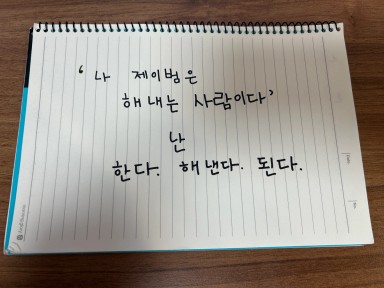 ‘나 제이범은
해내는 사람이다’
난
한다. 해낸다. 된다.